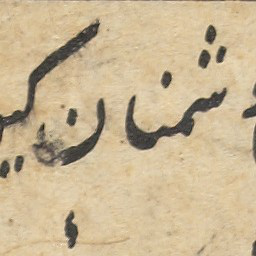 شمنان کی